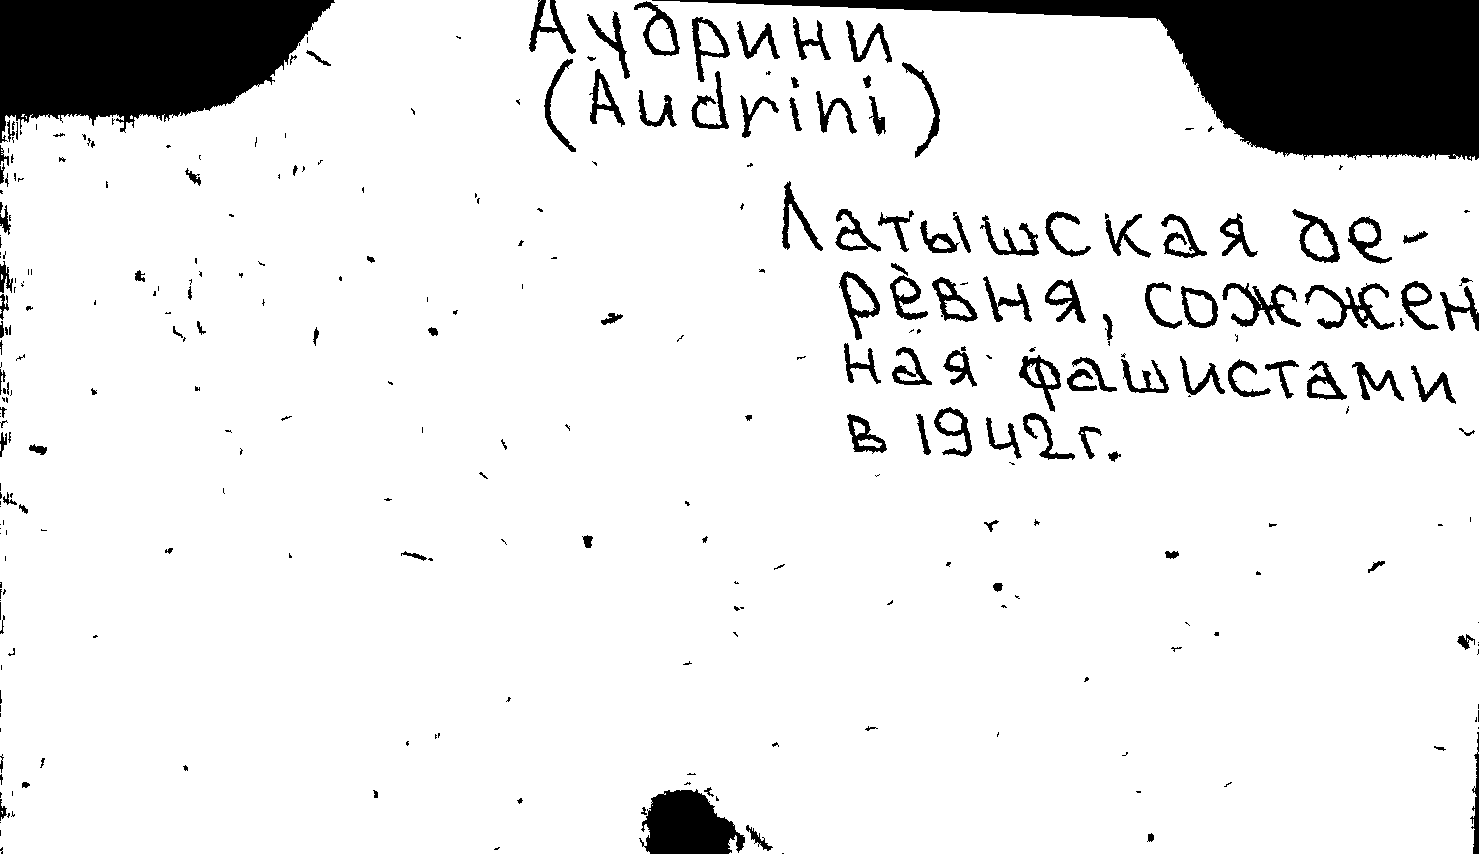 Аудрини
(Audrini)
Латышская де-
ревня, сожжен
ная фашистами
в 1942г.